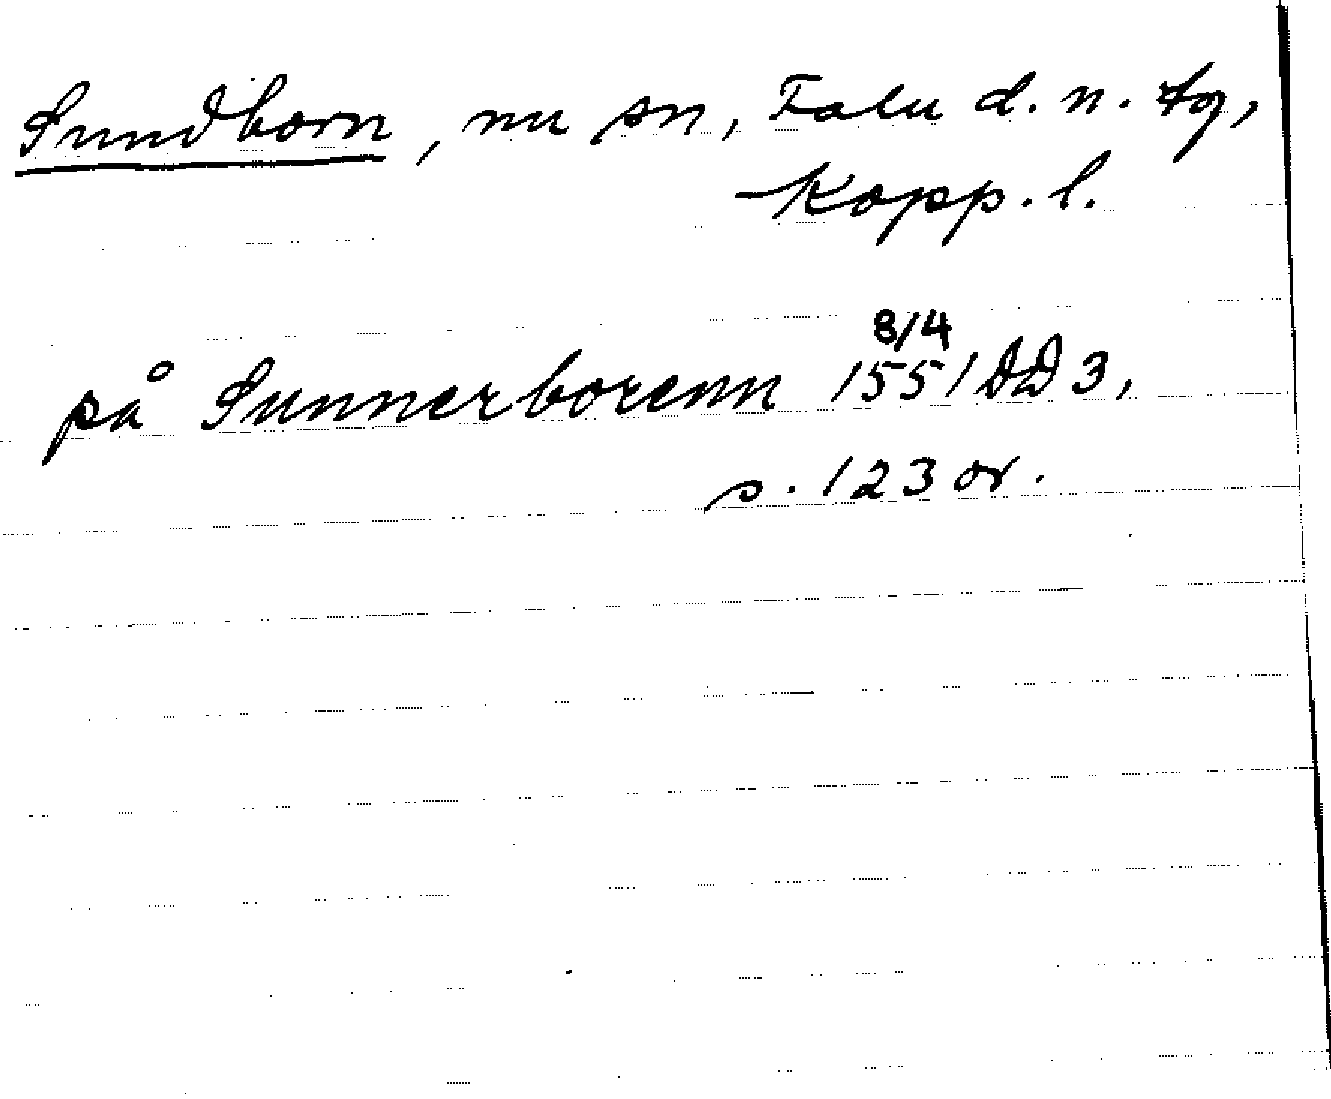 Sundborn, nu sn, Falu d. n. tg,
Kopp. l.
8/4
på Sunnerborenn 1551 DD 3,
s. 123 or.